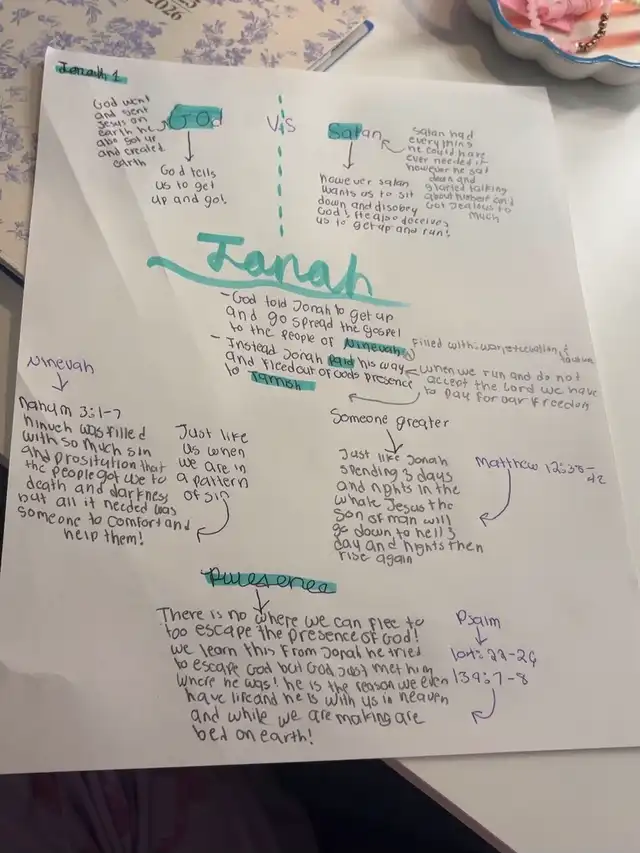 2026
Jonah 1
God went
and sent
Jesus on
earth he
also got up
and created
earth
God
God tells
us to get
up and go!
VS
Satan
however satan
wants us to sit
down and disobey
God! He also deceives
us to get up and run!
Satan had
everything
he could have
ever needed
however he sat
down and
started talking
about himself and
Got Jealous to
much
Jonah
- God told Jonah to get up
and go spread the gospel
to the people of Ninevah
filled with
- Instead Jonah paid his way
and fleed out of Gods presence
to Tarrish
when we run and do not
accept the Lord we have
to pay for our freedom
Ninevah
Nahum 3:1-7
ninuch was filled
with so much sin
and prositution that
the people got use to
death and darkness
but all it needed was
someone to comfort and
help them!
Just like
us when
we are in
a pattern
of sin
Someone greater
Just like Jonah
spending 3 days
and nights in the
whale Jesus the
son of man will
go down to hell 3
day and nights then
rise again
Matthew 12:38-
42
Presence
There is no where we can flee to
too escape the presence of God!
we learn this from Jonah he tried
to escape God but God Just met him
where he was! he is the reason we even
have life and he is with us in heaven
and while we are making are
bed on earth!
Psalm
139:7-8